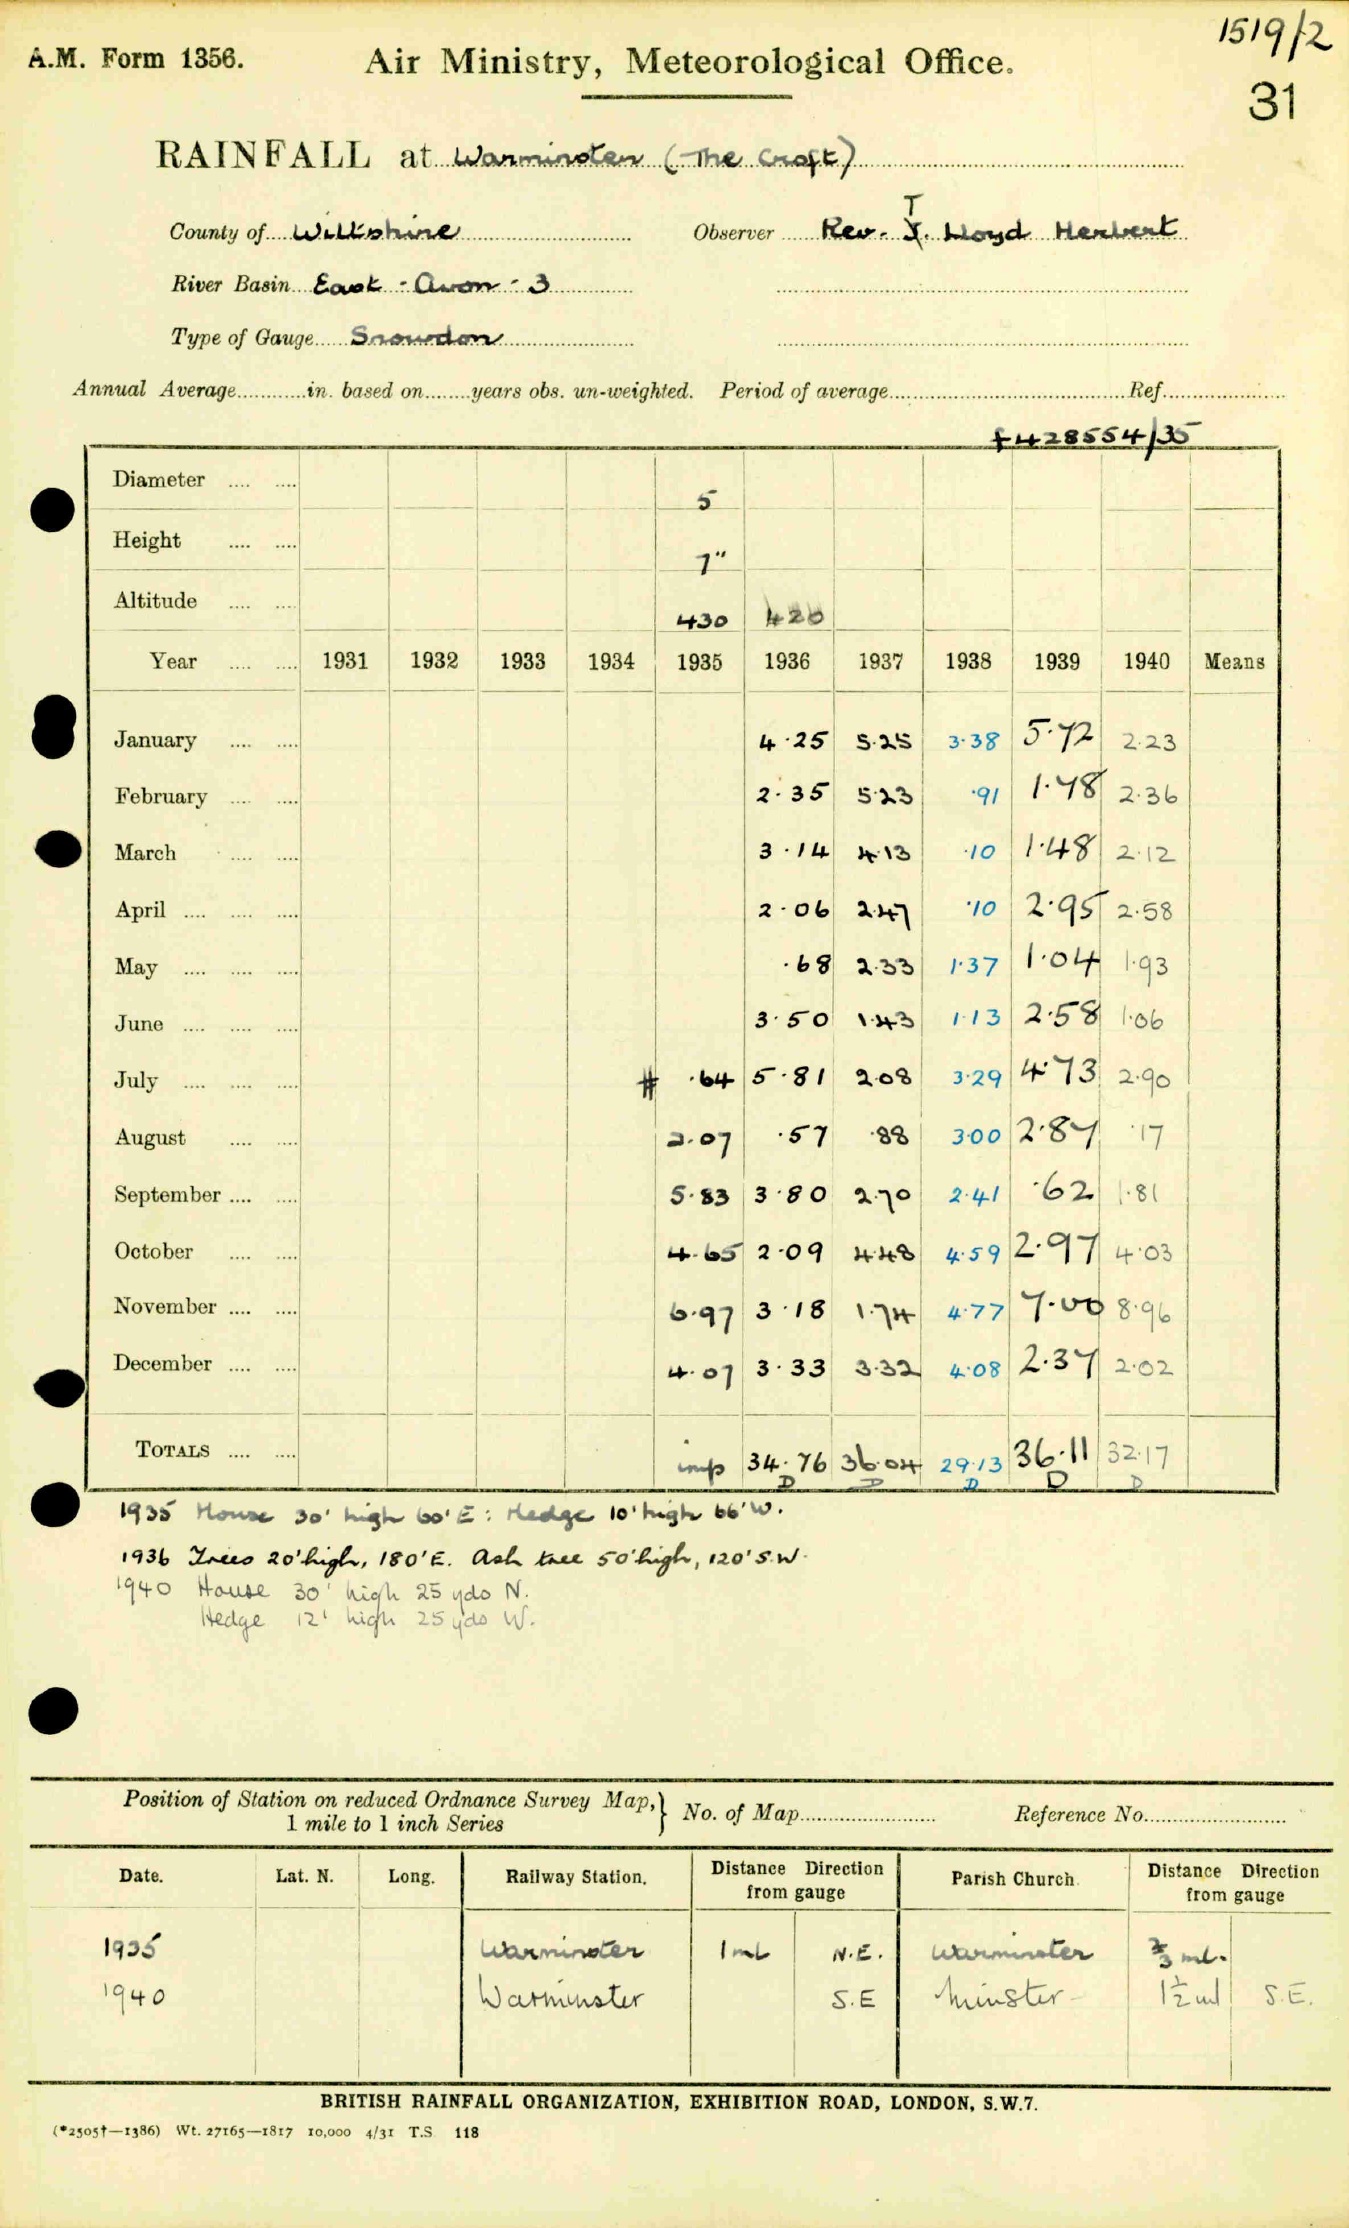 1519/2
A.M. Form 1356. Air Ministry, Meteorological Office.
31
RAINFALL at Warminster (The Croft)
County of Wiltshire Observer Rev. T. Lloyd Herbert
River Basin East - Avon - 3
Type of Gauge Snowdon
Annual Average............in. based on........years obs. un-weighted. Period of average............Ref............
f428554/35
Diameter .... .... 5
Height .... .... 7"
Altitude .... .... 430 420
Year .... .... 1931 1932 1933 1934 1935 1936 1937 1938 1939 1940 Means
January .... .... 4.25 5.25 3.38 5.72 2.23
February .... .... 2.35 5.23 .91 1.78 2.36
March .... .... 3.14 4.13 .10 1.48 2.12
April .... .... .... 2.06 2.47 .10 2.95 2.58
May .... .... .... .68 2.33 1.37 1.04 1.93
June .... .... .... 3.50 1.43 1.13 2.58 1.06
July .... .... .... # .64 5.81 2.08 3.29 4.73 2.90
August .... .... 2.07 .57 .88 3.00 2.87 .17
September .... .... 5.83 3.80 2.70 2.41 .62 1.81
October .... .... 4.65 2.09 4.48 4.59 2.97 4.03
November .... .... 6.97 3.18 1.74 4.77 7.00 8.96
December .... .... 4.07 3.33 3.32 4.08 2.37 2.02
TOTALS .... .... imp 34.76 36.04 29.13 36.11 32.17
D D D D D
1935 House 30' high 60' E : Hedge 10' high 66' W.
1936 Trees 20' high, 180' E. Ash tree 50' high, 120' S.W.
1940 House 30' high 25 yds N.
Hedge 12' high 25 yds W.
Position of Station on reduced Ordnance Survey Map, 1 mile to 1 inch Series } No. of Map............ Reference No............
Date. Lat. N. Long. Railway Station. Distance Direction from gauge Parish Church. Distance Direction from gauge
1935 Warminster 1 ml N.E. Warminster 2/3 ml.
1940 Warminster S.E Minster 1½ ml S.E.
BRITISH RAINFALL ORGANIZATION, EXHIBITION ROAD, LONDON, S.W.7.
(*2505†—1386) Wt. 27165—1817 10,000 4/31 T.S. 118